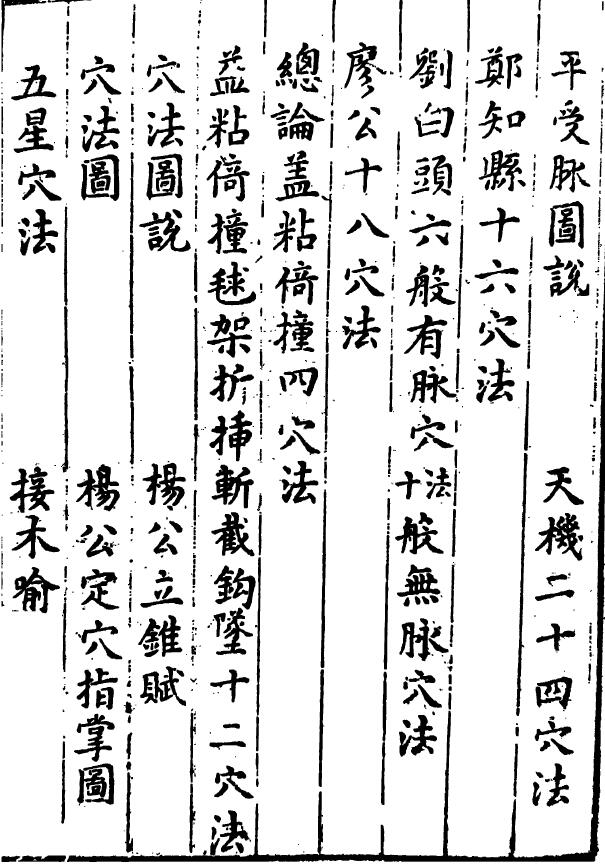 平受脉圖說　天機二十四穴法
鄭知縣十六穴法
劉白頭六般有脉穴法十般無脉穴法
廖公十八穴法
總論盖粘倚撞四穴法
盖粘倚撞毬架折揷斬截鈎墜十二穴法
穴法圖說　楊公立錐賦
穴法圖　楊公定穴指掌圖
五星穴法　接木喻